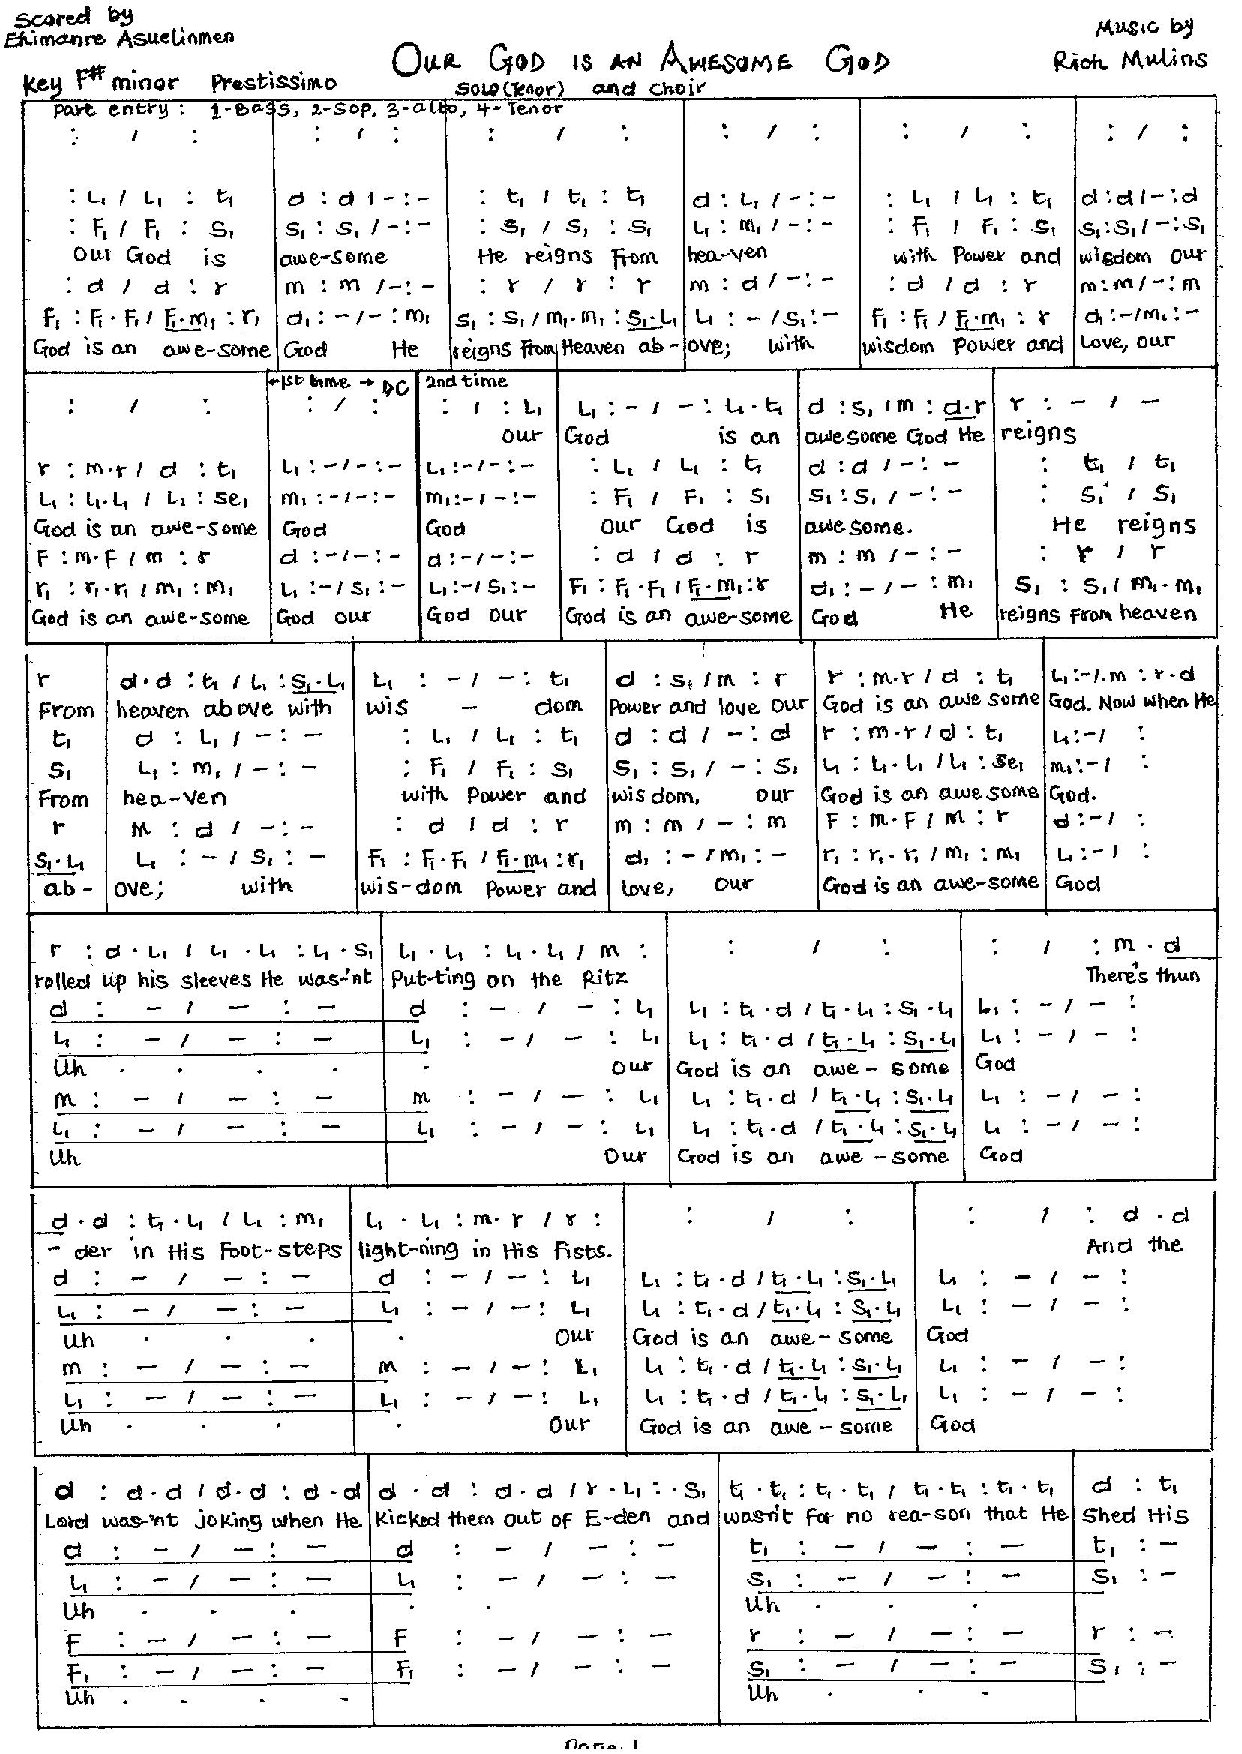 Scored by
Ehimanre Asuelinmen
Music by
Rich Mulins
OUR GOD IS AN AWESOME GOD
Key F# minor Prestissimo
Solo (Tenor) and choir
Part entry : 1-Bass, 2-Sop, 3-alto, 4-Tenor
: / : | : / : | : / : | : / : | : / : | : / :
: L₁ / L₁ : t₁ | d : d / - : - | : t₁ / t₁ : t₁ | d : L₁ / - : - | : L₁ / L₁ : t₁ | d : d / - : d
: F₁ / F₁ : S₁ | S₁ : S₁ / - : - | : S₁ / S₁ : S₁ | L₁ : m₁ / - : - | : F₁ / F₁ : S₁ | S₁ : S₁ / - : S₁
Our God is awe-some He reigns From hea-ven with Power and wisdom our
: d / d : r | m : m / - : - | : r / r : r | m : d / - : - | : d / d : r | m : m / - : m
F₁ : F₁ . F₁ / F₁ . m₁ : r₁ | d₁ : - / - : m₁ | S₁ : S₁ / m₁ . m₁ : S₁ . L₁ | L₁ : - / S₁ : - | F₁ : F₁ / F₁ . m₁ : r | d₁ : - / m₁ : -
God is an awe-some God He reigns from Heaven ab-ove; with wisdom Power and Love, our
←1st time → DC 2nd time
: / : | : / : | : / : L₁ | L₁ : - / - : L₁ . t₁ | d : S₁ / m : d . r | r : - / -
our God is an awesome God He reigns
r : m . r / d : t₁ | L₁ : - / - : - | L₁ : - / - : - | : L₁ / L₁ : t₁ | d : d / - : - | : t₁ / t₁
L₁ : L₁ . L₁ / L₁ : se₁ | m₁ : - / - : - | m₁ : - / - : - | : F₁ / F₁ : S₁ | S₁ : S₁ / - : - | : S₁ / S₁
God is an awe-some God God our God is awesome. He reigns
F : m . F / m : r | d : - / - : - | d : - / - : - | : d / d : r | m : m / - : - | : r / r
r₁ : r₁ . r₁ / m₁ : m₁ | L₁ : - / S₁ : - | L₁ : - / S₁ : - | F₁ : F₁ . F₁ / F₁ . m₁ : r | d₁ : - / - : m₁ | S₁ : S₁ / m₁ . m₁
God is an awe-some God our God our God is an awe-some God He reigns from heaven
r | d . d : t₁ / L₁ : S₁ . L₁ | L₁ : - / - : t₁ | d : S₁ / m : r | r : m . r / d : t₁ | L₁ : - / . m : r . d
From heaven above with wis - dom Power and love our God is an awe some God. Now when He
t₁ | d : L₁ / - : - | : L₁ / L₁ : t₁ | d : d / - : d | r : m . r / d : t₁ | L₁ : - / :
S₁ | L₁ : m₁ / - : - | : F₁ / F₁ : S₁ | S₁ : S₁ / - : S₁ | L₁ : L₁ . L₁ / L₁ : se₁ | m₁ : - / :
From hea-ven with Power and wisdom, our God is an awe some God.
r | m : d / - : - | : d / d : r | m : m / - : m | F : m . F / m : r | d : - / :
S₁ . L₁ | L₁ : - / S₁ : - | F₁ : F₁ . F₁ / F₁ . m₁ : r₁ | d₁ : - / m₁ : - | r₁ : r₁ . r₁ / m₁ : m₁ | L₁ : - / :
ab- ove; with wis-dom Power and love, our God is an awe-some God
r : d . L₁ / L₁ . L₁ : L₁ . S₁ | L₁ . L₁ : L₁ . L₁ / m : | : / : | : / : m . d
rolled up his sleeves He was-'nt Put-ting on the Ritz There's thun
d : - / - : - | d : - / - : L₁ | L₁ : t₁ . d / t₁ . L₁ : S₁ . L₁ | L₁ : - / - :
L₁ : - / - : - | L₁ : - / - : L₁ | L₁ : t₁ . d / t₁ . L₁ : S₁ . L₁ | L₁ : - / - :
Uh . . . . Our God is an awe - some God
m : - / - : - | m : - / - : L₁ | L₁ : t₁ . d / t₁ . L₁ : S₁ . L₁ | L₁ : - / - :
L₁ : - / - : - | L₁ : - / - : L₁ | L₁ : t₁ . d / t₁ . L₁ : S₁ . L₁ | L₁ : - / - :
Uh Our God is an awe - some God
d . d : t₁ . L₁ / L₁ : m₁ | L₁ . L₁ : m . r / r : | : / : | : / : d . d
- der in His Foot-steps light-ning in His Fists. And the
d : - / - : - | d : - / - : L₁ | L₁ : t₁ . d / t₁ . L₁ : S₁ . L₁ | L₁ : - / - :
L₁ : - / - : - | L₁ : - / - : L₁ | L₁ : t₁ . d / t₁ . L₁ : S₁ . L₁ | L₁ : - / - :
Uh . . . . Our God is an awe - some God
m : - / - : - | m : - / - : L₁ | L₁ : t₁ . d / t₁ . L₁ : S₁ . L₁ | L₁ : - / - :
L₁ : - / - : - | L₁ : - / - : L₁ | L₁ : t₁ . d / t₁ . L₁ : S₁ . L₁ | L₁ : - / - :
Uh . . . . Our God is an awe - some God
d : d . d / d . d : d . d | d . d : d . d / r . L₁ : . S₁ | t₁ . t₁ : t₁ . t₁ / t₁ . t₁ : t₁ . t₁ | d : t₁
Lord was-'nt joking when He Kicked them out of E-den and wasn't for no rea-son that He Shed His
d : - / - : - | d : - / - : - | t₁ : - / - : - | t₁ : -
L₁ : - / - : - | L₁ : - / - : - | S₁ : - / - : - | S₁ : -
Uh . . . . . Uh . .
F : - / - : - | F : - / - : - | r : - / - : - | r : -
F₁ : - / - : - | F₁ : - / - : - | S₁ : - / - : - | S₁ : -
Uh . . . Uh . .
Page 1